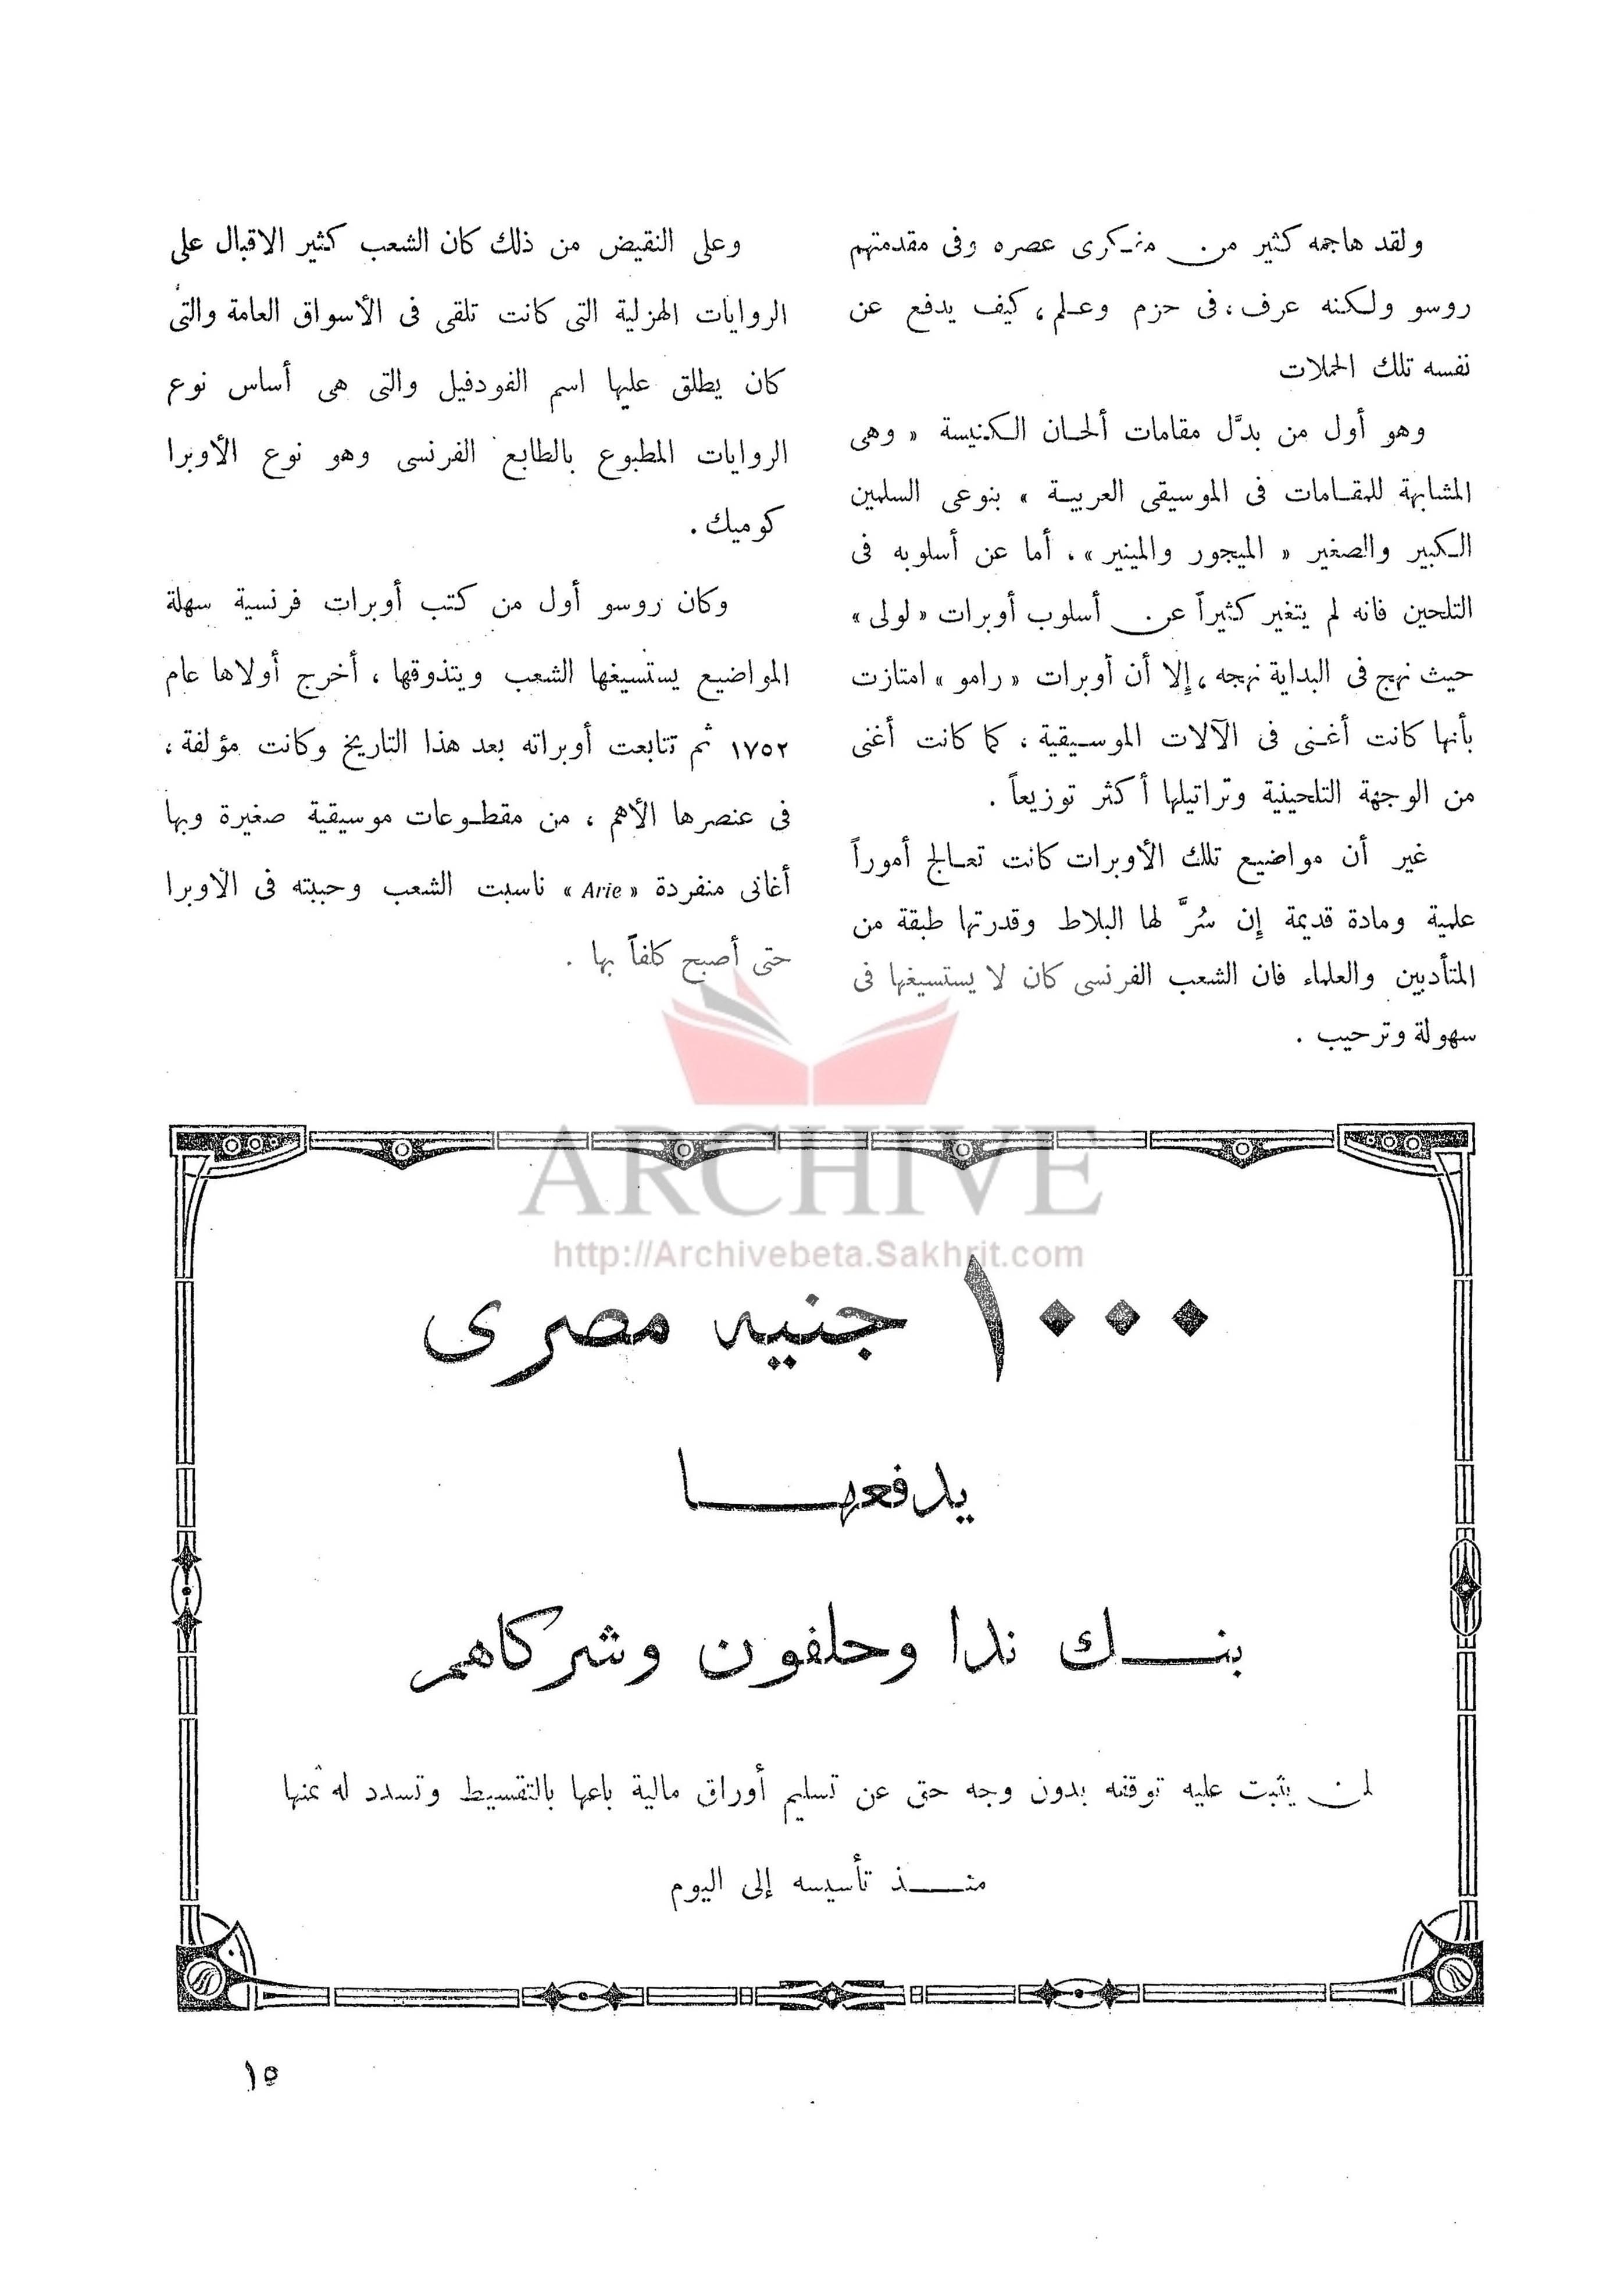 ولقد هاجمه كثير من مفكرى عصره وفى مقدمتهم
روسو ولكنه عرف، فى حزم وعلم، كيف يدفع عن
نفسه تلك الحملات
وهو أول من بدَّل مقامات ألحان الكنيسة « وهى
المشابهة للمقامات فى الموسيقى العربية » بنوعى السلمين
الكبير والصغير « الميجور والمينير » ، أما عن أسلوبه فى
التلحين فانه لم يتغير كثيراً عن أسلوب أوبرات « لولى »
حيث نهج فى البداية نهجه ، إلا أن أوبرات « رامو » امتازت
بأنها كانت أغنى فى الآلات الموسيقية ، كما كانت أغنى
من الوجهة التلحينية وتراتيلها أكثر توزيعاً .
غير أن مواضيع تلك الأوبرات كانت تعالج أموراً
علمية ومادة قديمة إن سُرَّ لها البلاط وقدرتها طبقة من
المتأدبين والعلماء فان الشعب الفرنسى كان لا يستسيغها فى
سهولة وترحيب .
وعلى النقيض من ذلك كان الشعب كثير الاقبال على
الروايات الهزلية التى كانت تلقى فى الأسواق العامة والتى
كان يطلق عليها اسم الفودفيل والتى هى أساس نوع
الروايات المطبوع بالطابع الفرنسى وهو نوع الأوبرا
كوميك .
وكان روسو أول من كتب أوبرات فرنسية سهلة
المواضيع يستسيغها الشعب ويتذوقها ، أخرج أولاها عام
١٧٥٢ ثم تتابعت أوبراته بعد هذا التاريخ وكانت مؤلفة ،
فى عنصرها الأهم ، من مقطوعات موسيقية صغيرة وبها
أغانى منفردة « Arie » ناسبت الشعب وحببته فى الاوبرا
حتى أصبح كلفاً بها .
ARCHIVE
http://Archivebeta.Sakhrit.com
١٠٠٠ جنيه مصرى
يدفعها
بنك ندا وحلفون وشركاهم
لمن يثبت عليه توقفه بدون وجه حق عن تسليم أوراق مالية باعها بالتقسيط وتسدد له ثمنها
منذ تأسيسه إلى اليوم
١٥